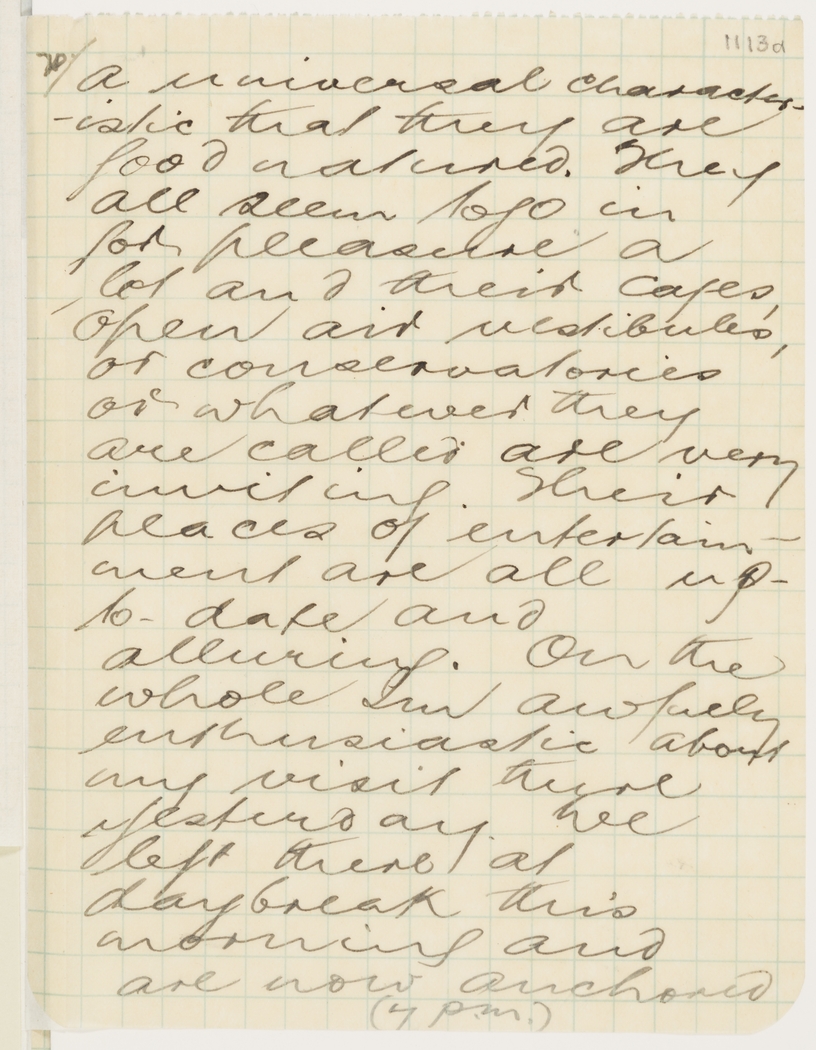 1113d
20/ a universal character-
-istic that they are
good natured. They
all seem to go in
for pleasure a
lot and their cafes,
open air vestibules,
or conservatories
or whatever they
are called are very
inviting. Their
places of entertain-
ment are all up-
to-date and
alluring. On the
whole Im awfully
enthusiastic about
my visit there
yesterday. We
left there at
daybreak this
morning and
are now anchored
(4 p.m.)